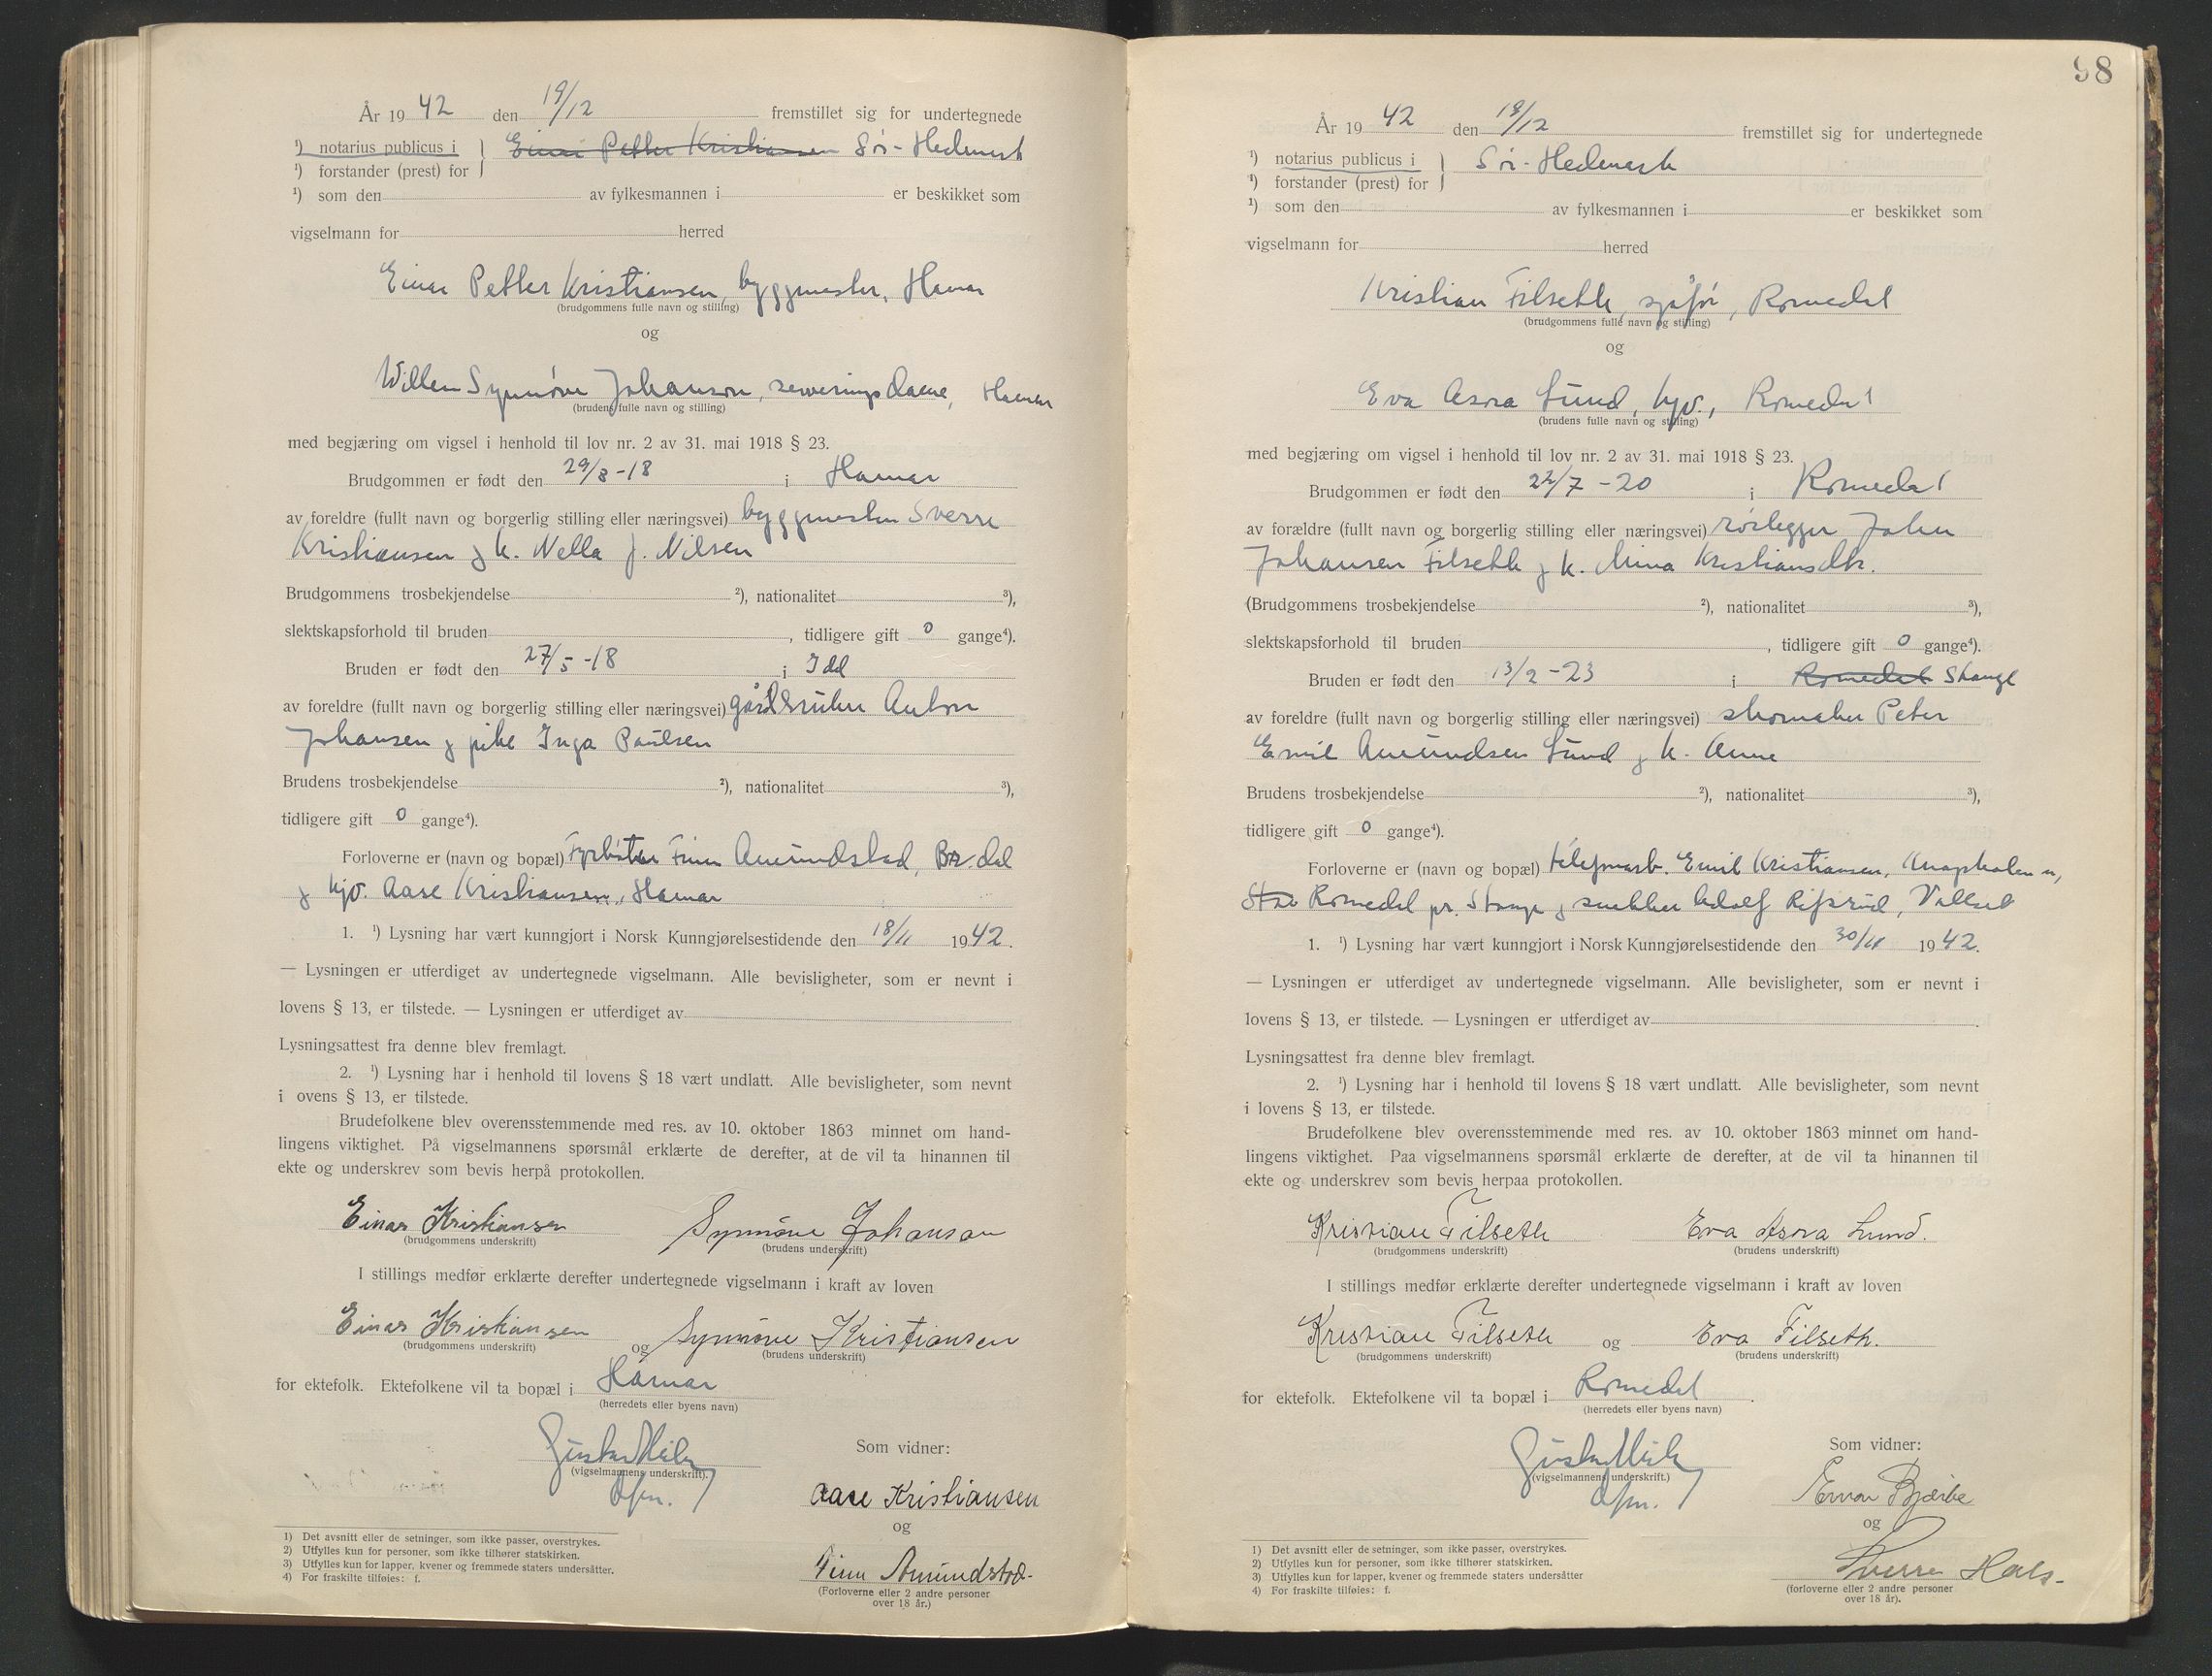 År 1942 den 19/12 fremstillet sig for undertegnede
¹) notarius publicus i } Einar Petter Kristiansen Sör-Hedmark
¹) forstander (prest) for
¹) som den av fylkesmannen i er beskikket som
vigselmann for herred
Einar Petter Kristiansen, byggmester, Hamar
(brudgommens fulle navn og stilling)
og
Willem Synnöve Johanson, serveringsdame, Hamar
(brudens fulle navn og stilling)
med begjæring om vigsel i henhold til lov nr. 2 av 31. mai 1918 § 23.
Brudgommen er født den 29/8-18 i Hamar
av foreldre (fullt navn og borgerlig stilling eller næringsvei) byggmester Sverre
Kristiansen og h. Nella J. Nilsen
Brudgommens trosbekjendelse ²), nationalitet ³),
slektskapsforhold til bruden , tidligere gift 0 gange⁴).
Bruden er født den 27/5-18 i Idd
av foreldre (fullt navn og borgerlig stilling eller næringsvei) gårdbruker Anton
Johansen og pike Inga Paulsen
Brudens trosbekjendelse ²), nationalitet ³),
tidligere gift 0 gange⁴).
Forloverne er (navn og bopæl) Fyrböter Finn Amundstad, Br.dal
og hjv. Aase Kristiansen, Hamar
1. ¹) Lysning har vært kunngjort i Norsk Kunngjørelsestidende den 18/11 1942.
— Lysningen er utferdiget av undertegnede vigselmann. Alle bevisligheter, som er nevnt i
lovens § 13, er tilstede. — Lysningen er utferdiget av
Lysningsattest fra denne blev fremlagt.
2. ¹) Lysning har i henhold til lovens § 18 vært undlatt. Alle bevisligheter, som nevnt
i ovens § 13, er tilstede.
Brudefolkene blev overensstemmende med res. av 10. oktober 1863 minnet om hand-
lingens viktighet. På vigselmannens spørsmål erklærte de derefter, at de vil ta hinannen til
ekte og underskrev som bevis herpå protokollen.
Einar Kristiansen Synnöve Johanson
(brudgommens underskrift) (brudens underskrift)
I stillings medfør erklærte derefter undertegnede vigselmann i kraft av loven
Einar Kristiansen og Synnöve Kristiansen
(brudgommens underskrift) (brudens underskrift)
for ektefolk. Ektefolkene vil ta bopæl i Hamar
(herredets eller byens navn)
(vigselmannens underskrift).
Som vidner:
Aase Kristiansen
og
Finn Amundstad.
(Forloverne eller 2 andre personer
over 18 år.)
1) Det avsnitt eller de setninger, som ikke passer, overstrykes.
2) Utfylles kun for personer, som ikke tilhører statskirken.
3) Utfylles kun for lapper, kvener og fremmede staters undersåtter.
4) For fraskilte tilføies: f.
98
År 1942 den 19/12 fremstillet sig for undertegnede
¹) notarius publicus i } Sör-Hedmark
¹) forstander (prest) for
¹) som den av fylkesmannen i er beskikket som
vigselmann for herred
Kristian Filseth, sjåför, Romedal
(brudgommens fulle navn og stilling)
og
Eva Asora Lund, hjv., Romedal
(brudens fulle navn og stilling)
med begjæring om vigsel i henhold til lov nr. 2 av 31. mai 1918 § 23.
Brudgommen er født den 22/7-20 i Romedal
av forældre (fullt navn og borgerlig stilling eller næringsvei) rörlegger John
Johansen Filseth og h. Mina Kristiansdtr.
(Brudgommens trosbekjendelse ²), nationalitet ³),
slektskapsforhold til bruden , tidligere gift 0 gange⁴).
Bruden er født den 13/2-23 i Romedal Stange
av foreldre (fullt navn og borgerlig stilling eller næringsvei) skomaker Peter
Emil Amundsen Lund og h. Anne
Brudens trosbekjendelse ²), nationalitet ³),
tidligere gift 0 gange⁴).
Forloverne er (navn og bopæl) telefonarb. Emil Kristiansen,
Romedal pr. Stange og snekker Adolf Rifsrud, Vallset
1. ¹) Lysning har vært kunngjort i Norsk Kunngjørelsestidende den 30/11 1942.
— Lysningen er utferdiget av undertegnede vigselmann. Alle bevisligheter, som er nevnt i
lovens § 13, er tilstede. — Lysningen er utferdiget av
Lysningsattest fra denne blev fremlagt.
2. ¹) Lysning har i henhold til lovens § 18 vært undlatt. Alle bevisligheter, som nevnt
i lovens § 13, er tilstede.
Brudefolkene blev overensstemmende med res. av 10. oktober 1863 minnet om hand-
lingens viktighet. Paa vigselmannens spørsmål erklærte de derefter, at de vil ta hinannen til
ekte og underskrev som bevis herpaa protokollen.
Kristian Filseth Eva Asora Lund.
(brudgommens underskrift) (brudens underskrift)
I stillings medfør erklærte derefter undertegnede vigselmann i kraft av loven
Kristian Filseth og Eva Filseth.
(brudgommens underskrift) (brudens underskrift)
for ektefolk. Ektefolkene vil ta bopæl i Romedal.
(herredets eller byens navn)
(vigselmannens underskrift.)
Som vidner:
og
Sverre Hals-
(forloverne eller 2 andre personer
over 18 år).
1) Det avsnitt eller de setninger, som ikke passer, overstrykes.
2) Utfylles kun for personer, som ikke tilhører statskirken.
3) Utfylles kun for lapper, kvener og fremmede staters undersåtter
4) For fraskilte tilføies: f.